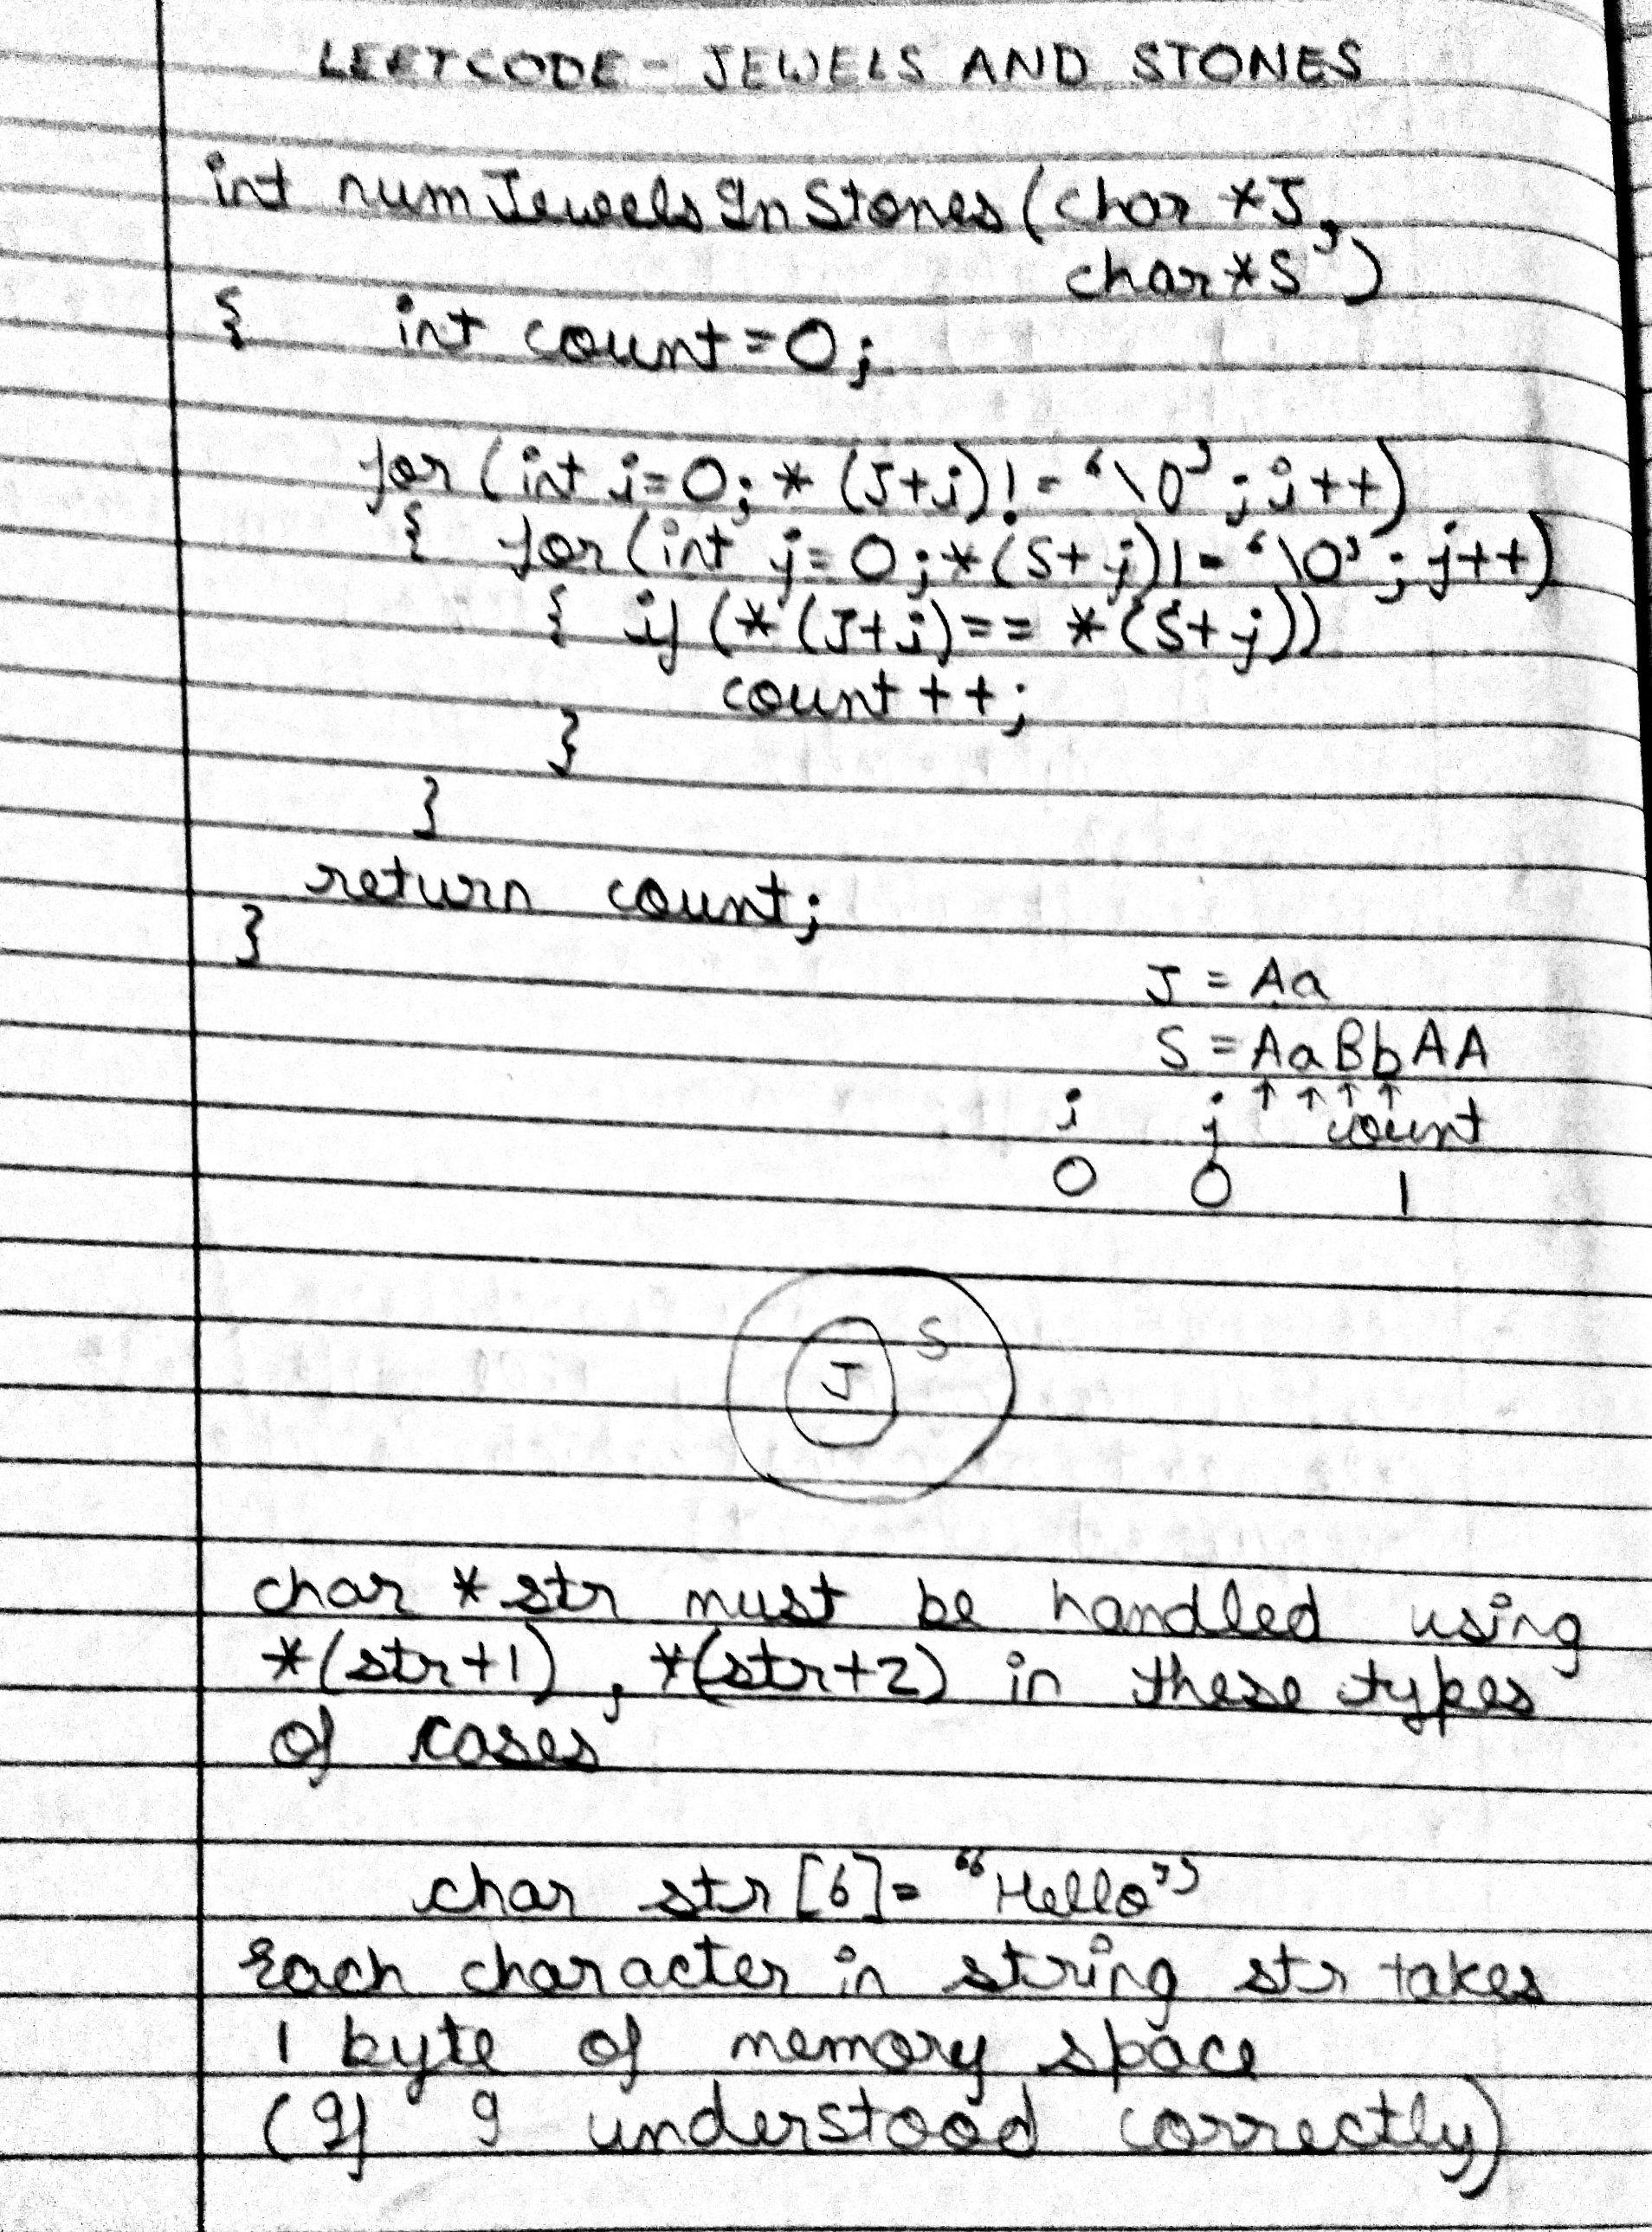 LEETCODE - JEWELS AND STONES
int numJewelsInStones(char *J,
char*S)
{ int count=0;
for(int i=0;*(J+i)!='\0';i++)
{ for(int j=0;*(S+j)!='\0';j++)
{ if(*(J+i)==*(S+j))
count++;
}
}
return count;
}
J = Aa
S = AaBbAA
↑ ↑ ↑ ↑
i j count
0 0 1
S
J
char *str must be handled using
*(str+1), *(str+2) in these types
of cases
char str[6]= "Hello"
Each character in string str takes
1 byte of memory space
(If I understood correctly)